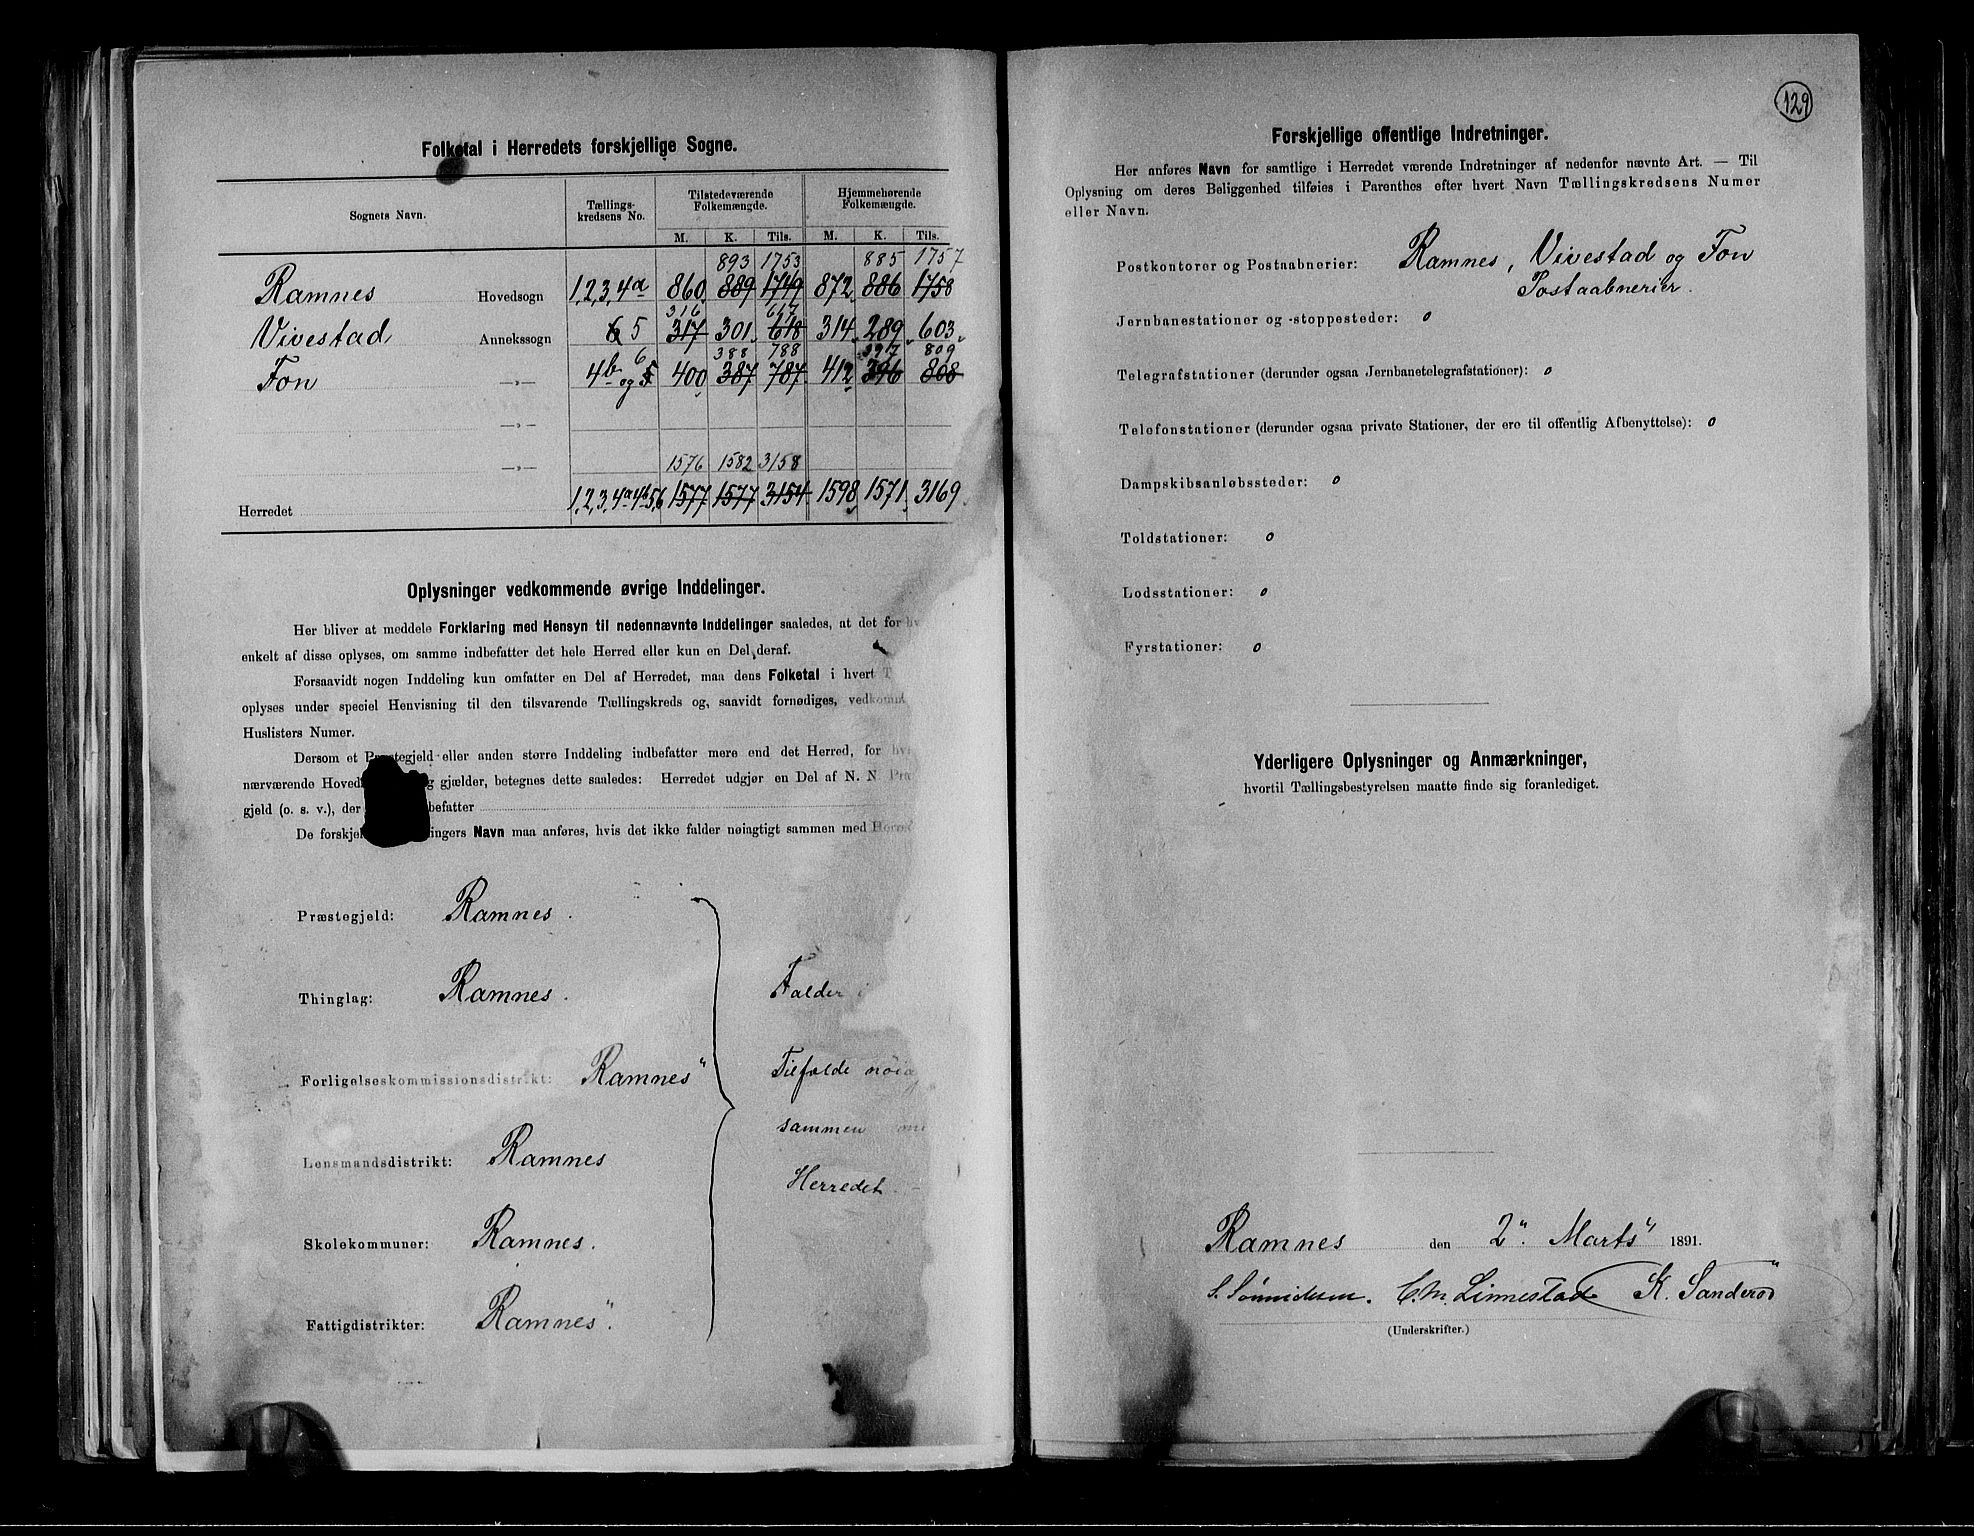 Folketal i Herredets forskjellige Sogne.
Sognets Navn. Tællings-kredsens No. Tilstedeværende Folkemængde. Hjemmehørende Folkemængde.
M. K. Tils. M. K. Tils.
893 1753 885 1757
Ramnes Hovedsogn 1,2,3,4a 860 889 1749 872 886 1758
316 617
Vivestad Annekssogn 6 5 317 301 618 314 289 603
6 388 788 397 809
Fon —»— 4b og 5 400 387 787 412 396 808
—»—
1576 1582 3158
—»—
Herredet 1,2,3,4a4b5,6 1577 1577 3154 1598 1571 3169
Oplysninger vedkommende øvrige Inddelinger.
Her bliver at meddele Forklaring med Hensyn til nedennævnte Inddelinger saaledes, at det for hv
enkelt af disse oplyses, om samme indbefatter det hele Herred eller kun en Del deraf.
Forsaavidt nogen Inddeling kun omfatter en Del af Herredet, maa dens Folketal i hvert T
oplyses under speciel Henvisning til den tilsvarende Tællingskreds og, saavidt fornødiges, vedkomm
Huslisters Numer.
Dersom et Præstegjeld eller anden større Inddeling indbefatter mere end det Herred, for hvi
nærværende Hoved g gjælder, betegnes dette saaledes: Herredet udgjør en Del af N. N. Præ
gjeld (o. s. v.), der befatter
De forskjel ingers Navn maa anføres, hvis det ikke falder nøiagtigt sammen med Herred
Præstegjeld: Ramnes.
Thinglag: Ramnes.
Falder i
Forligelseskommissionsdistrikt: Ramnes"
Tilfælde nøia
sammen me
Lensmandsdistrikt: Ramnes
Herredet.
Skolekommuner: Ramnes.
Fattigdistrikter: Ramnes".
129
Forskjellige offentlige Indretninger.
Her anføres Navn for samtlige i Herredet værende Indretninger af nedenfor nævnte Art. — Til
Oplysning om deres Beliggenhed tilføies i Parenthes efter hvert Navn Tællingskredsens Numer
eller Navn.
Postkontorer og Postaabnerier: Ramnes, Vivestad og Fon
Postaabnerier.
Jernbanestationer og -stoppesteder: 0
Telegrafstationer (derunder ogsaa Jernbanetelegrafstationer): 0
Telefonstationer (derunder ogsaa private Stationer, der ere til offentlig Afbenyttelse): 0
Dampskibsanløbssteder: 0
Toldstationer: 0
Lodsstationer: 0
Fyrstationer: 0
Yderligere Oplysninger og Anmærkninger,
hvortil Tællingsbestyrelsen maatte finde sig foranlediget.
Ramnes den 2" Marts" 1891.
C. M. Linnestad K. Sanderød
(Underskrifter.)